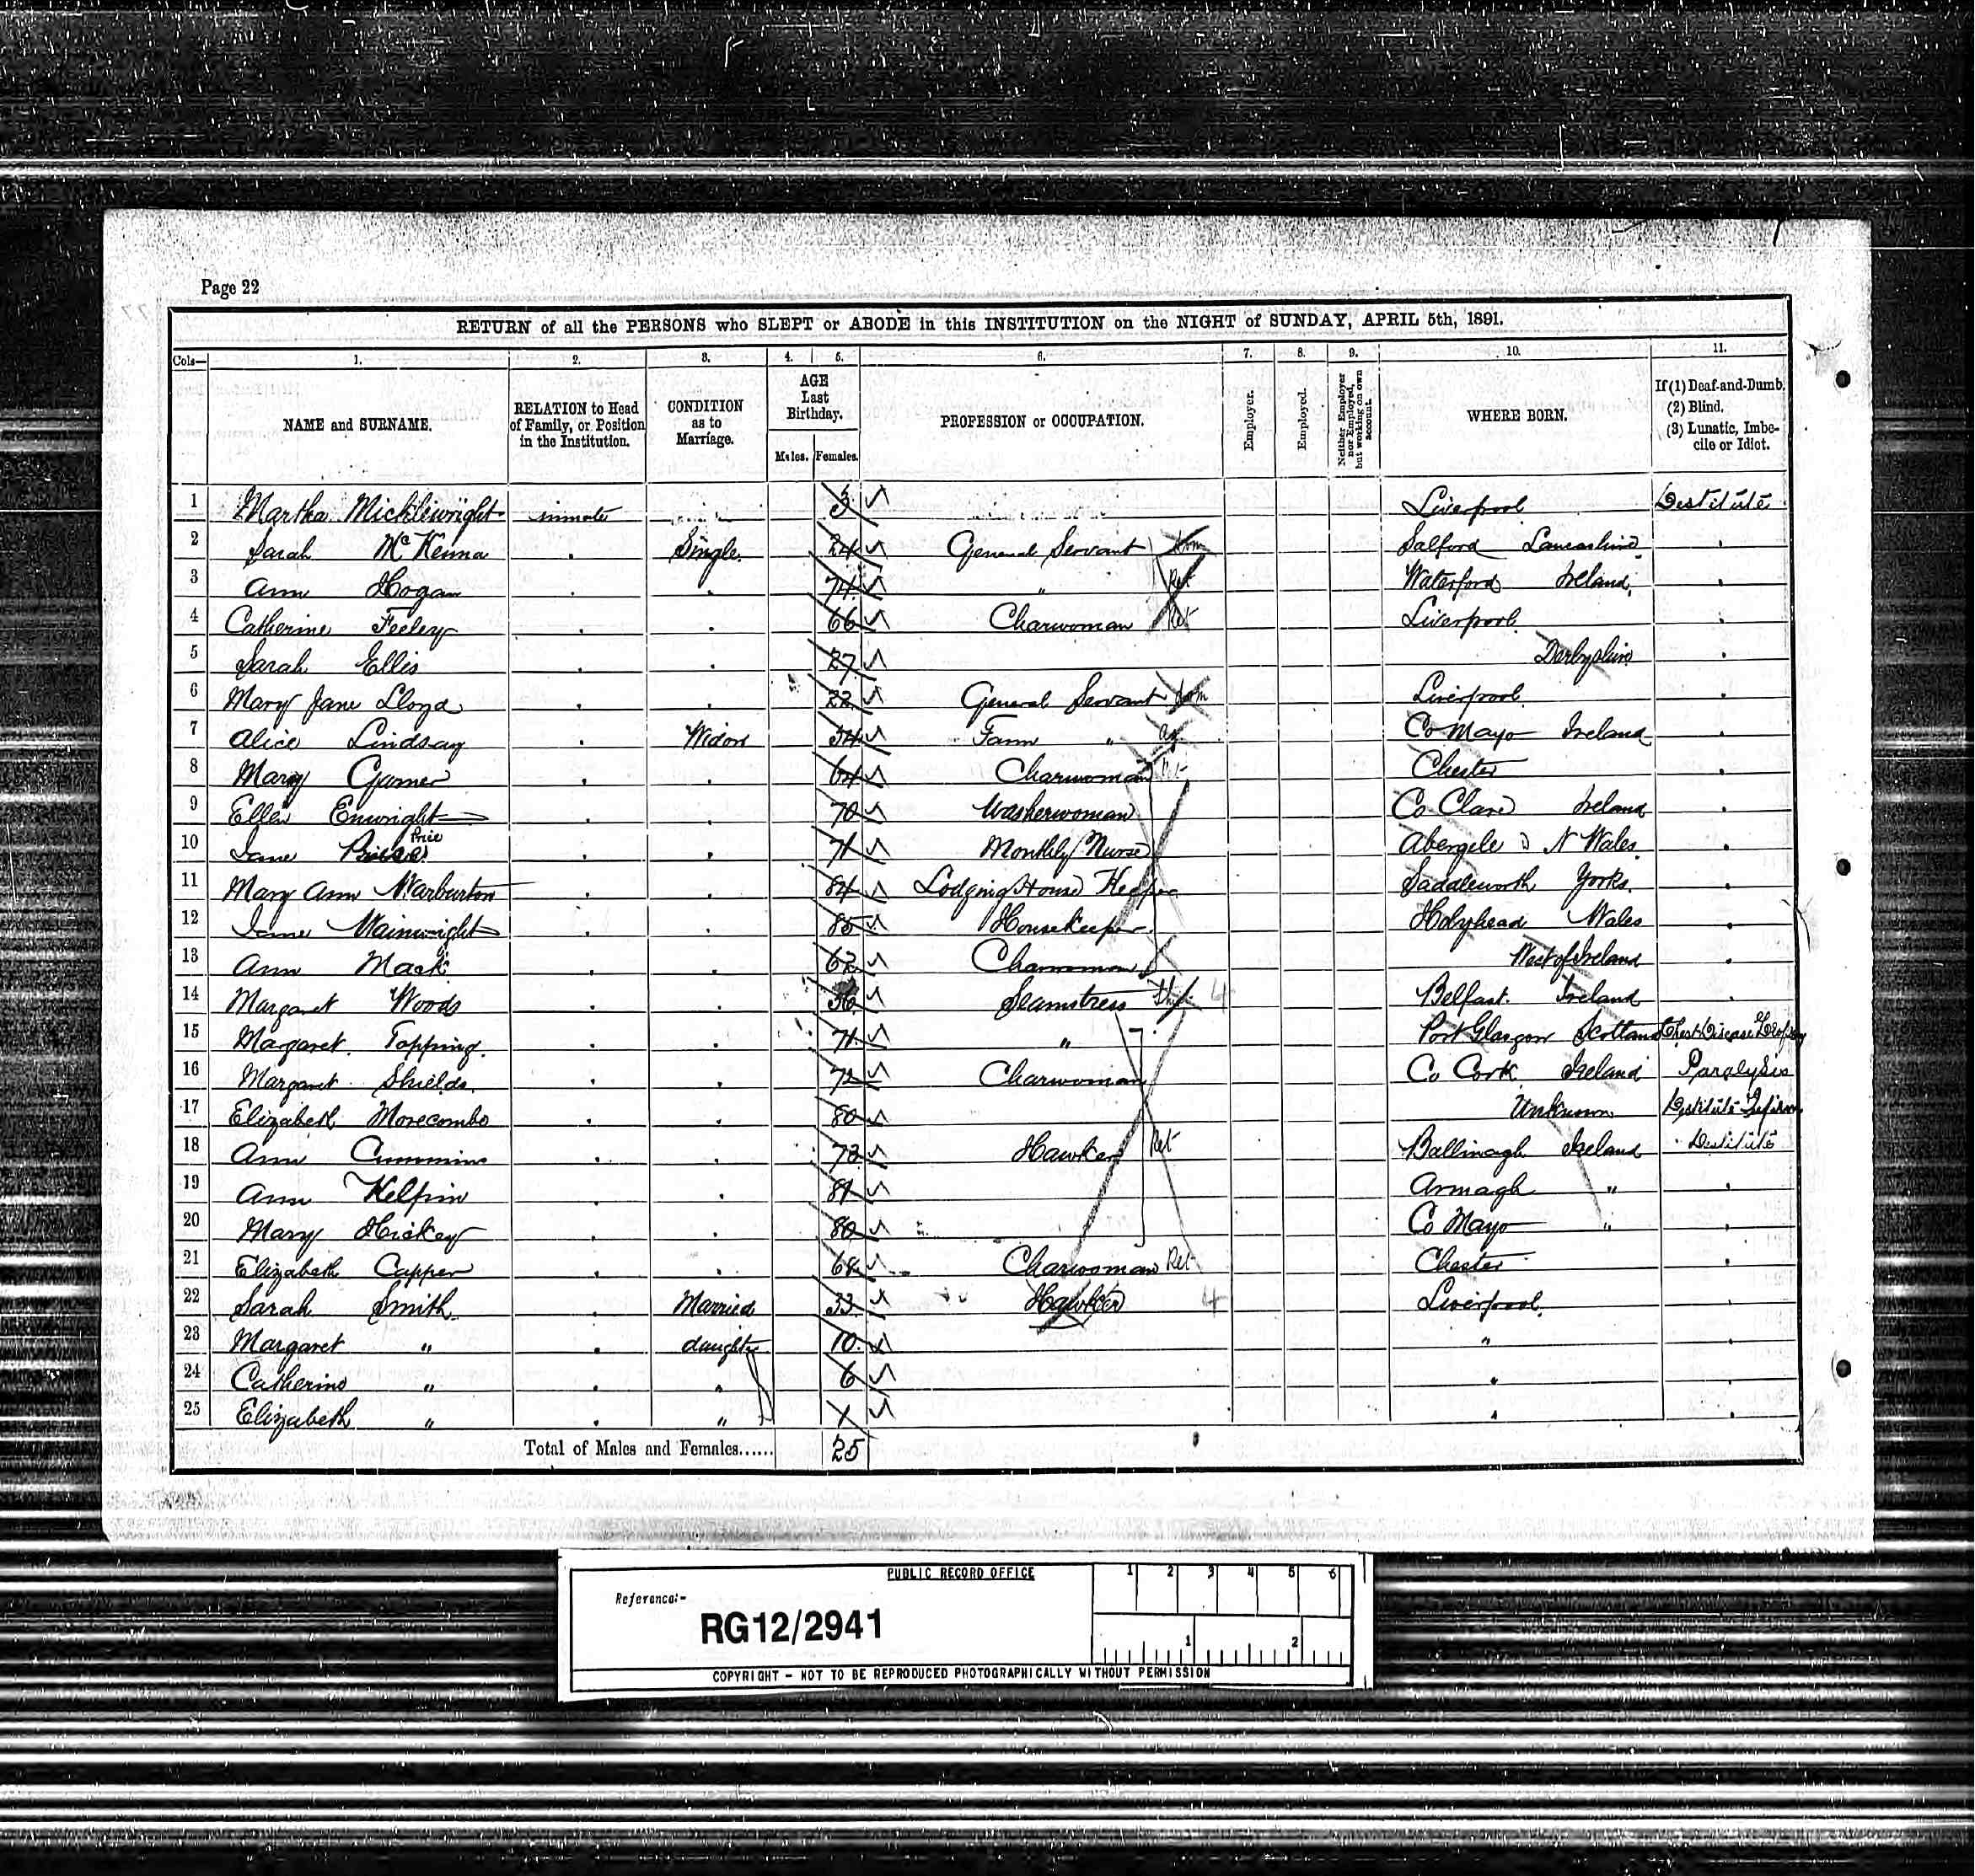 Page 22
RETURN of all the PERSONS who SLEPT or ABODE in this INSTITUTION on the NIGHT of SUNDAY, APRIL 5th, 1891.
Cols— 1. 2. 3. 4. 5. 6. 7. 8. 9. 10. 11.
NAME and SURNAME. RELATION to Head of Family, or Position in the Institution. CONDITION as to Marriage. AGE Last Birthday. Males. Females. PROFESSION or OCCUPATION. Employer. Employed. Neither Employer nor Employed, but working on own account. WHERE BORN. If (1) Deaf-and-Dumb. (2) Blind. (3) Lunatic, Imbecile or Idiot.
1 Martha Micklewright inmate 3 Liverpool Destitute
2 Sarah McKenna . Single. 24 General Servant Dom Salford Lancashire .
3 Ann Hogan . . 74 " Ret Waterford Ireland .
4 Catherine Feeley . . 66 Charwoman Ret Liverpool .
5 Sarah Ellis . . 27 Derbyshire .
6 Mary Jane Lloyd . . 22 General Servant Dom Liverpool .
7 Alice Lindsay . Widow 34 Farm " Ag Co Mayo Ireland .
8 Mary Garner . . 64 Charwoman Ret Chester .
9 Ellen Enwright . . 70 Washerwoman Co Clare Ireland .
10 Jane Price . . 71 Monthly Nurse Abergele N Wales .
11 Mary Ann Warburton . . 84 Lodging House Keeper Saddleworth Yorks. .
12 Jane Wainwright . . 85 Housekeeper Holyhead Wales .
13 Ann Mack . . 62 Charwoman West of Ireland .
14 Margaret Woods . . 36 Seamstress 4 Belfast. Ireland .
15 Margaret Topping . . 71 " Port Glasgow Scotland Chest Disease & Dropsy
16 Margaret Shields . . 72 Charwoman Co Cork Ireland Paralysis
17 Elizabeth Morecombe . . 80 Unknown Destitute Infirm
18 Ann Cummins . . 73 Hawker Ret Ballinagh Ireland Destitute
19 Ann Kelpin . . 81 Armagh " .
20 Mary Hickey . . 80 Co Mayo " .
21 Elizabeth Capper . . 68 Charwoman Ret Chester .
22 Sarah Smith . Married 33 Hawker 4 Liverpool .
23 Margaret " . daughter 10 " .
24 Catherine " . " 6 " .
25 Elizabeth " . " " .
Total of Males and Females...... 25
PUBLIC RECORD OFFICE 1 2 3 4 5 6
Reference:-
RG12/2941
1 2
COPYRIGHT - NOT TO BE REPRODUCED PHOTOGRAPHICALLY WITHOUT PERMISSION